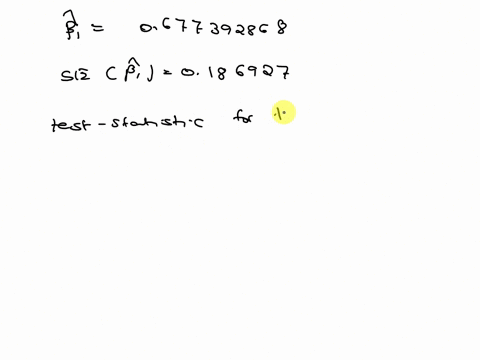 β̂₁ = 0.677392868
SE (β̂₁) = 0.186927
test-statistic for